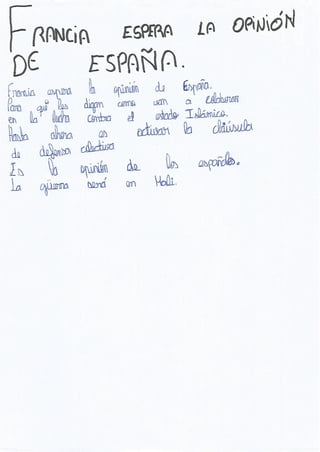 FRANCIA ESPERA LA OPINIÓN
DE ESPAÑA.
Francia espera la opinión de España.
Para qué les digan como van a colaborar
en la lucha contra el estado Islámico.
Hasta ahora es activar la cláusula
de defensa colectiva
Es la opinión de los españoles.
La guerra será en Mali.